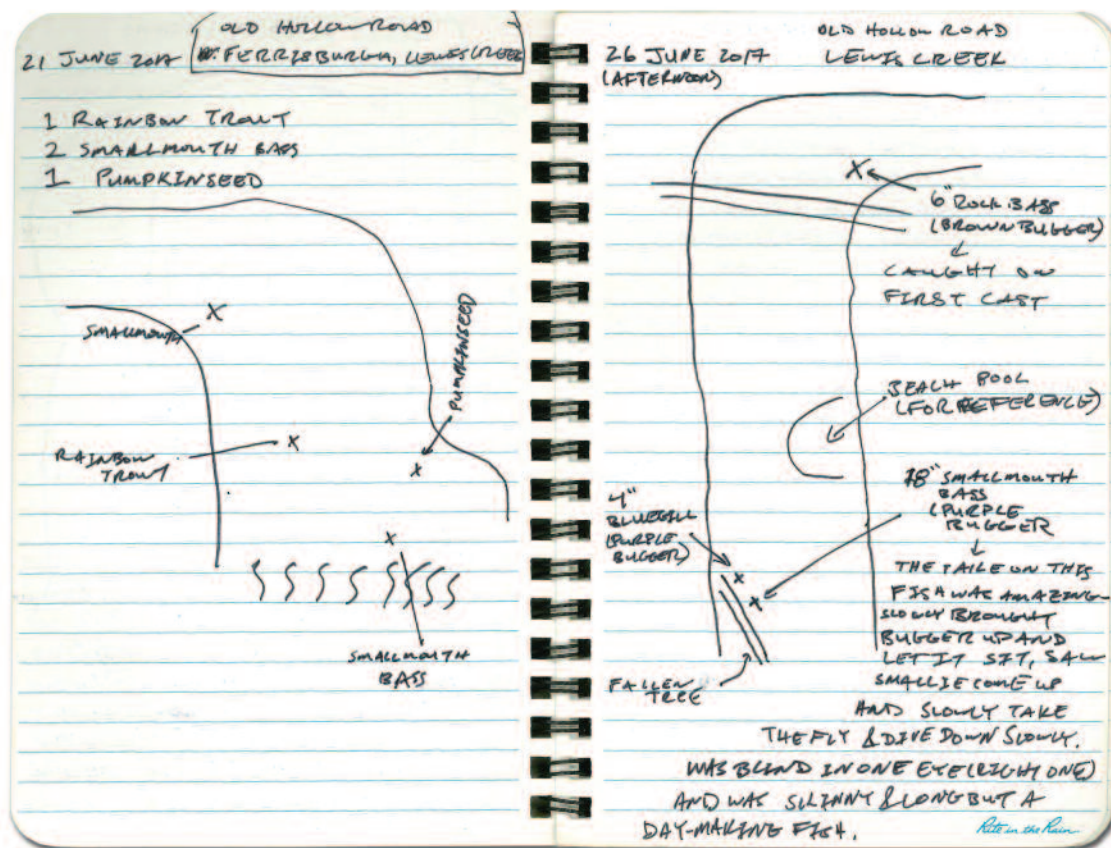 21 JUNE 2017
OLD HOLLOW ROAD
N. FERRISBURGH, LEWIS CREEK
1 RAINBOW TROUT
2 SMALLMOUTH BASS
1 PUMPKINSEED
SMALLMOUTH X
PUMPKINSEED
RAINBOW
TROUT
X
X
X
SMALLMOUTH
BASS
26 JUNE 2017
(AFTERNOON)
OLD HOLLOW ROAD
LEWIS CREEK
X
6" ROCK BASS
(BROWN BUGGER)
CAUGHT ON
FIRST CAST
BEACH POOL
(FOR REFERENCE)
4"
BLUEGILL
(PURPLE
BUGGER)
X
X
FALLEN
TREE
18" SMALLMOUTH
BASS
(PURPLE
BUGGER
THE TAKE ON THIS
FISH WAS AMAZING-
SLOWLY BROUGHT
BUGGER UP AND
LET IT SIT, SAW
SMALLIE COME UP
AND SLOWLY TAKE
THE FLY & DIVE DOWN SLOWLY.
WAS BLIND IN ONE EYE (RIGHT ONE)
AND WAS SKINNY & LONG BUT A
DAY-MAKING FISH.
Rite in the Rain